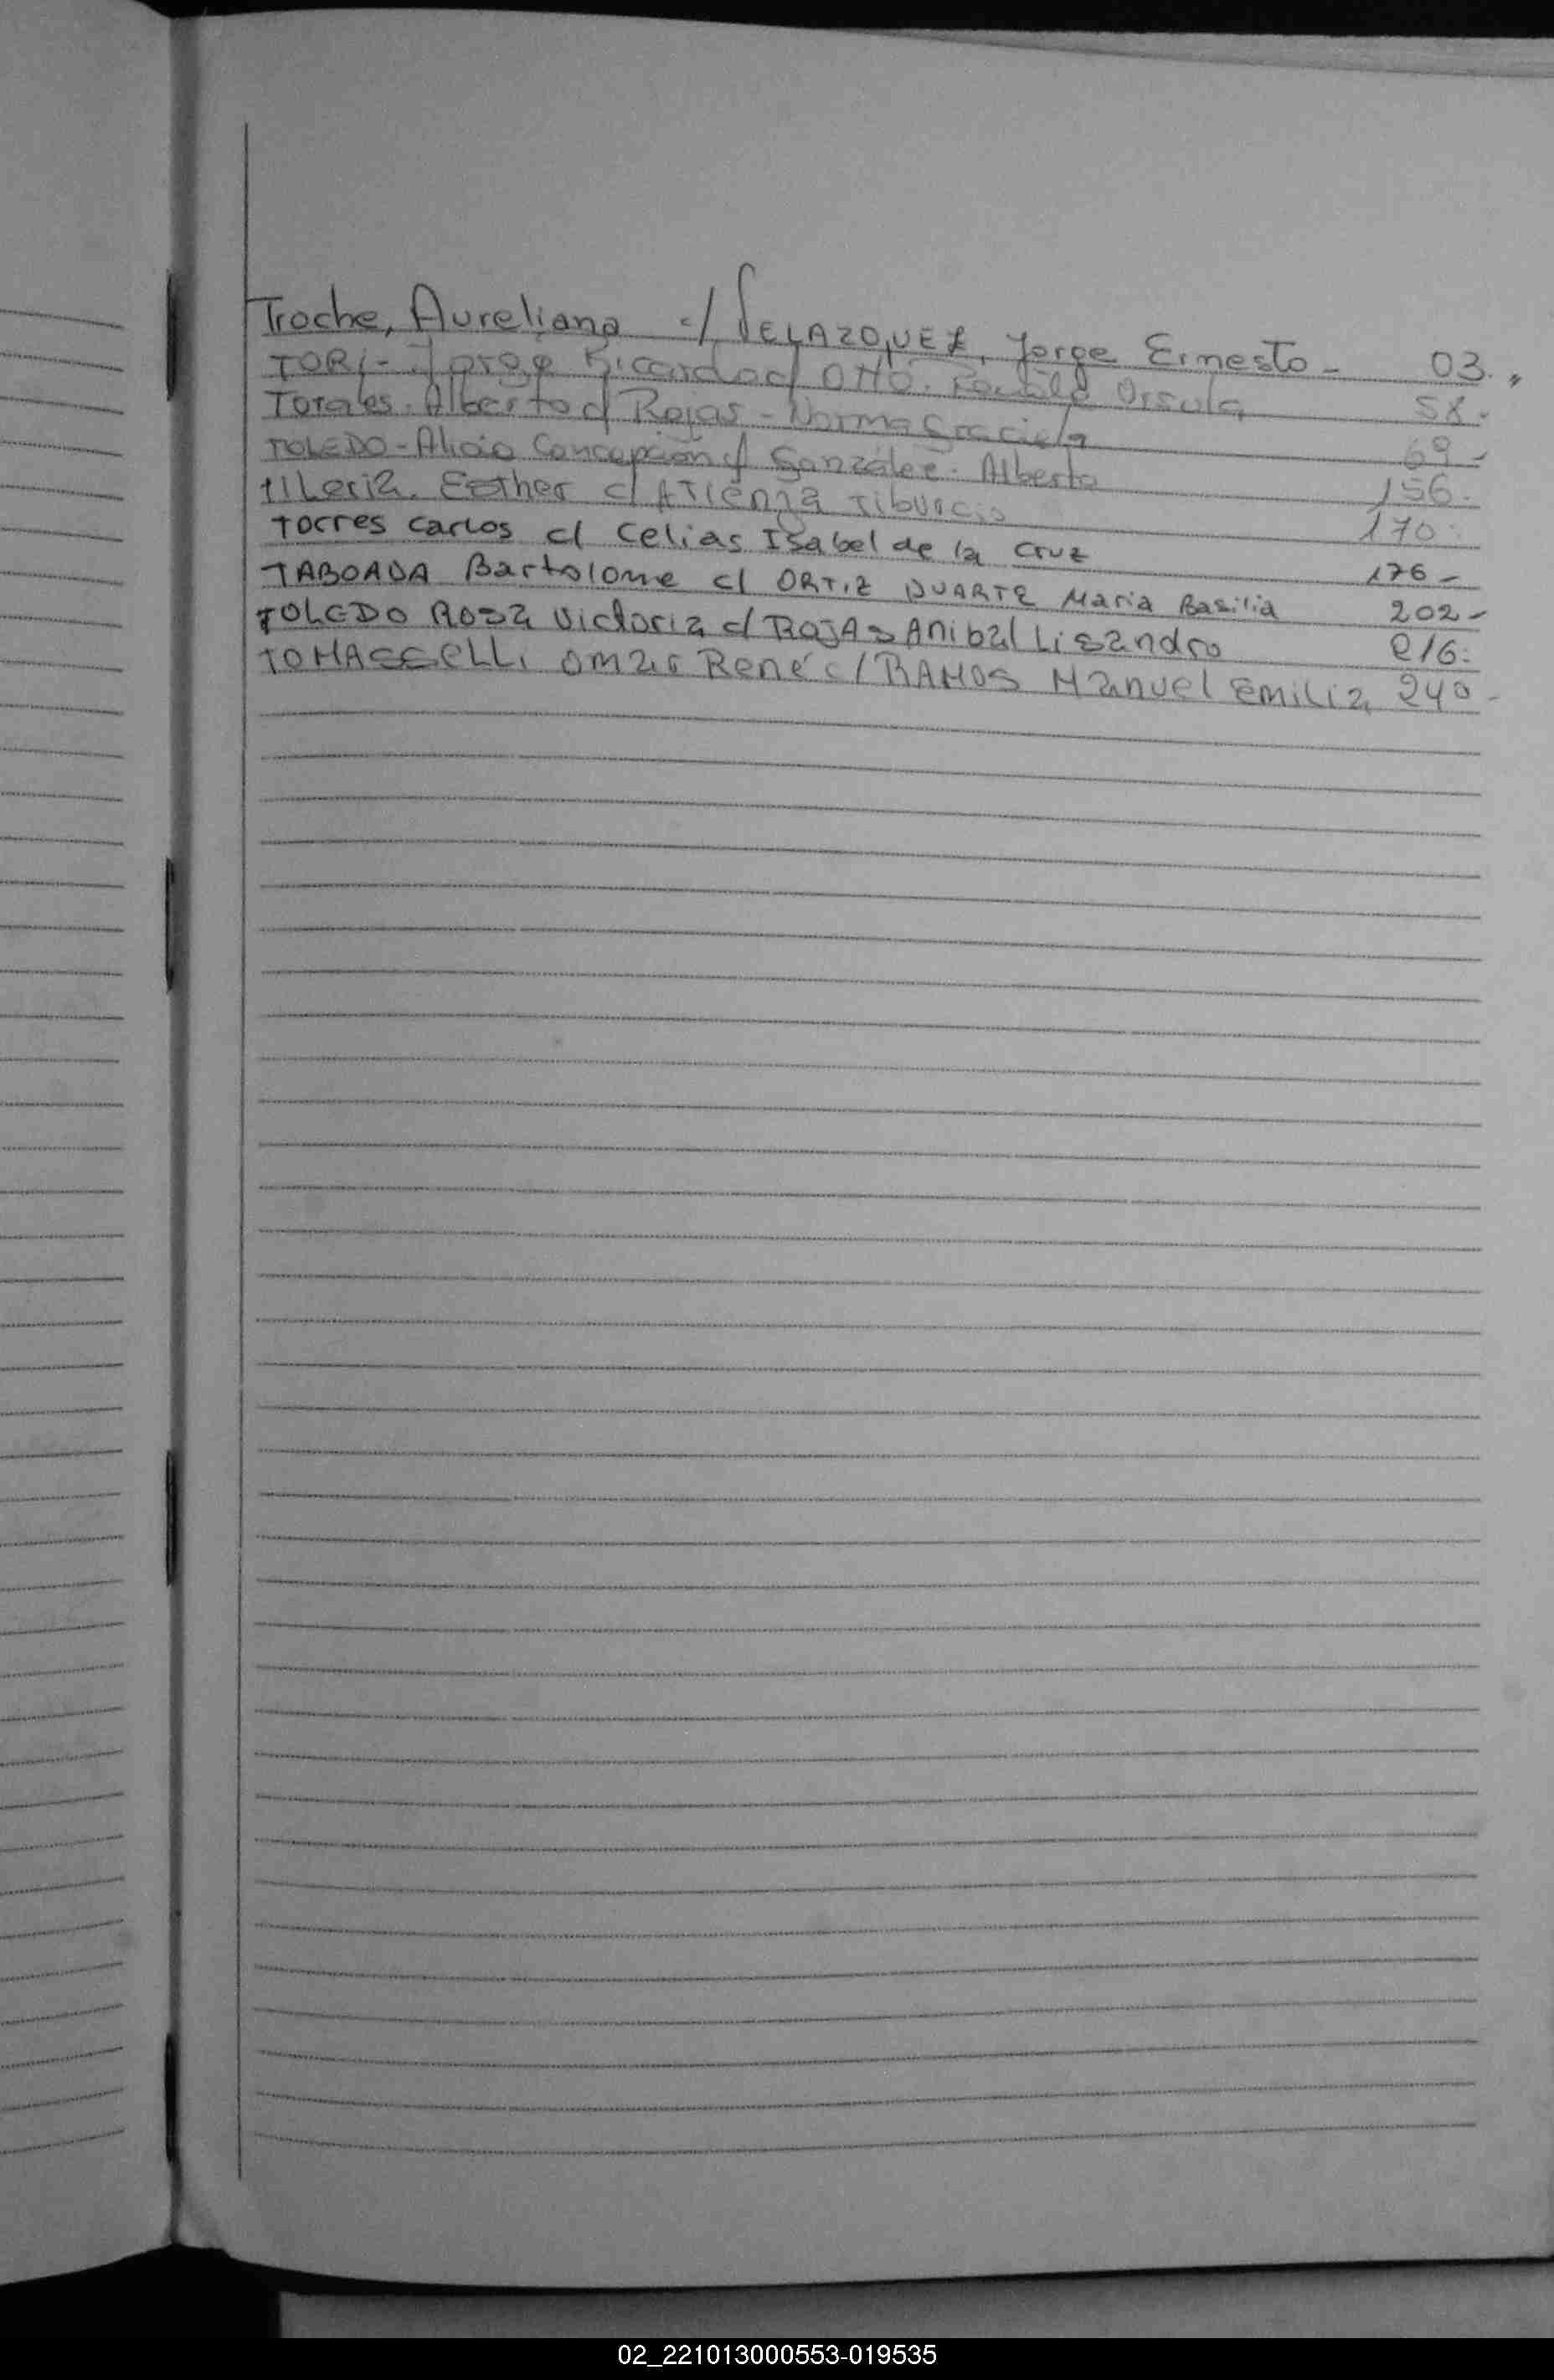 Troche, Aureliana c/ VELAZQUEZ, Jorge Ernesto - 03.
TORI- Jorge Ricardo c/ OTTO. Ursula 58.
Torales. Alberto c/ Rojas - Norma Graciela 69-
TOLEDO - Alicia Concepción c/ González. Alberto 156.
Esther c/ ATIENZA Tiburcio 170.
Torres Carlos c/ Celias Isabel de la Cruz 176-
TABOADA Bartolome c/ ORTIZ DUARTE Maria Basilia 202-
TOLEDO Rosa Victoria c/ ROJAS Anibal Lisandro 216.
TOMASSELLI OMar René c/ RAMOS Manuel EMilia 240-
02_221013000553-019535